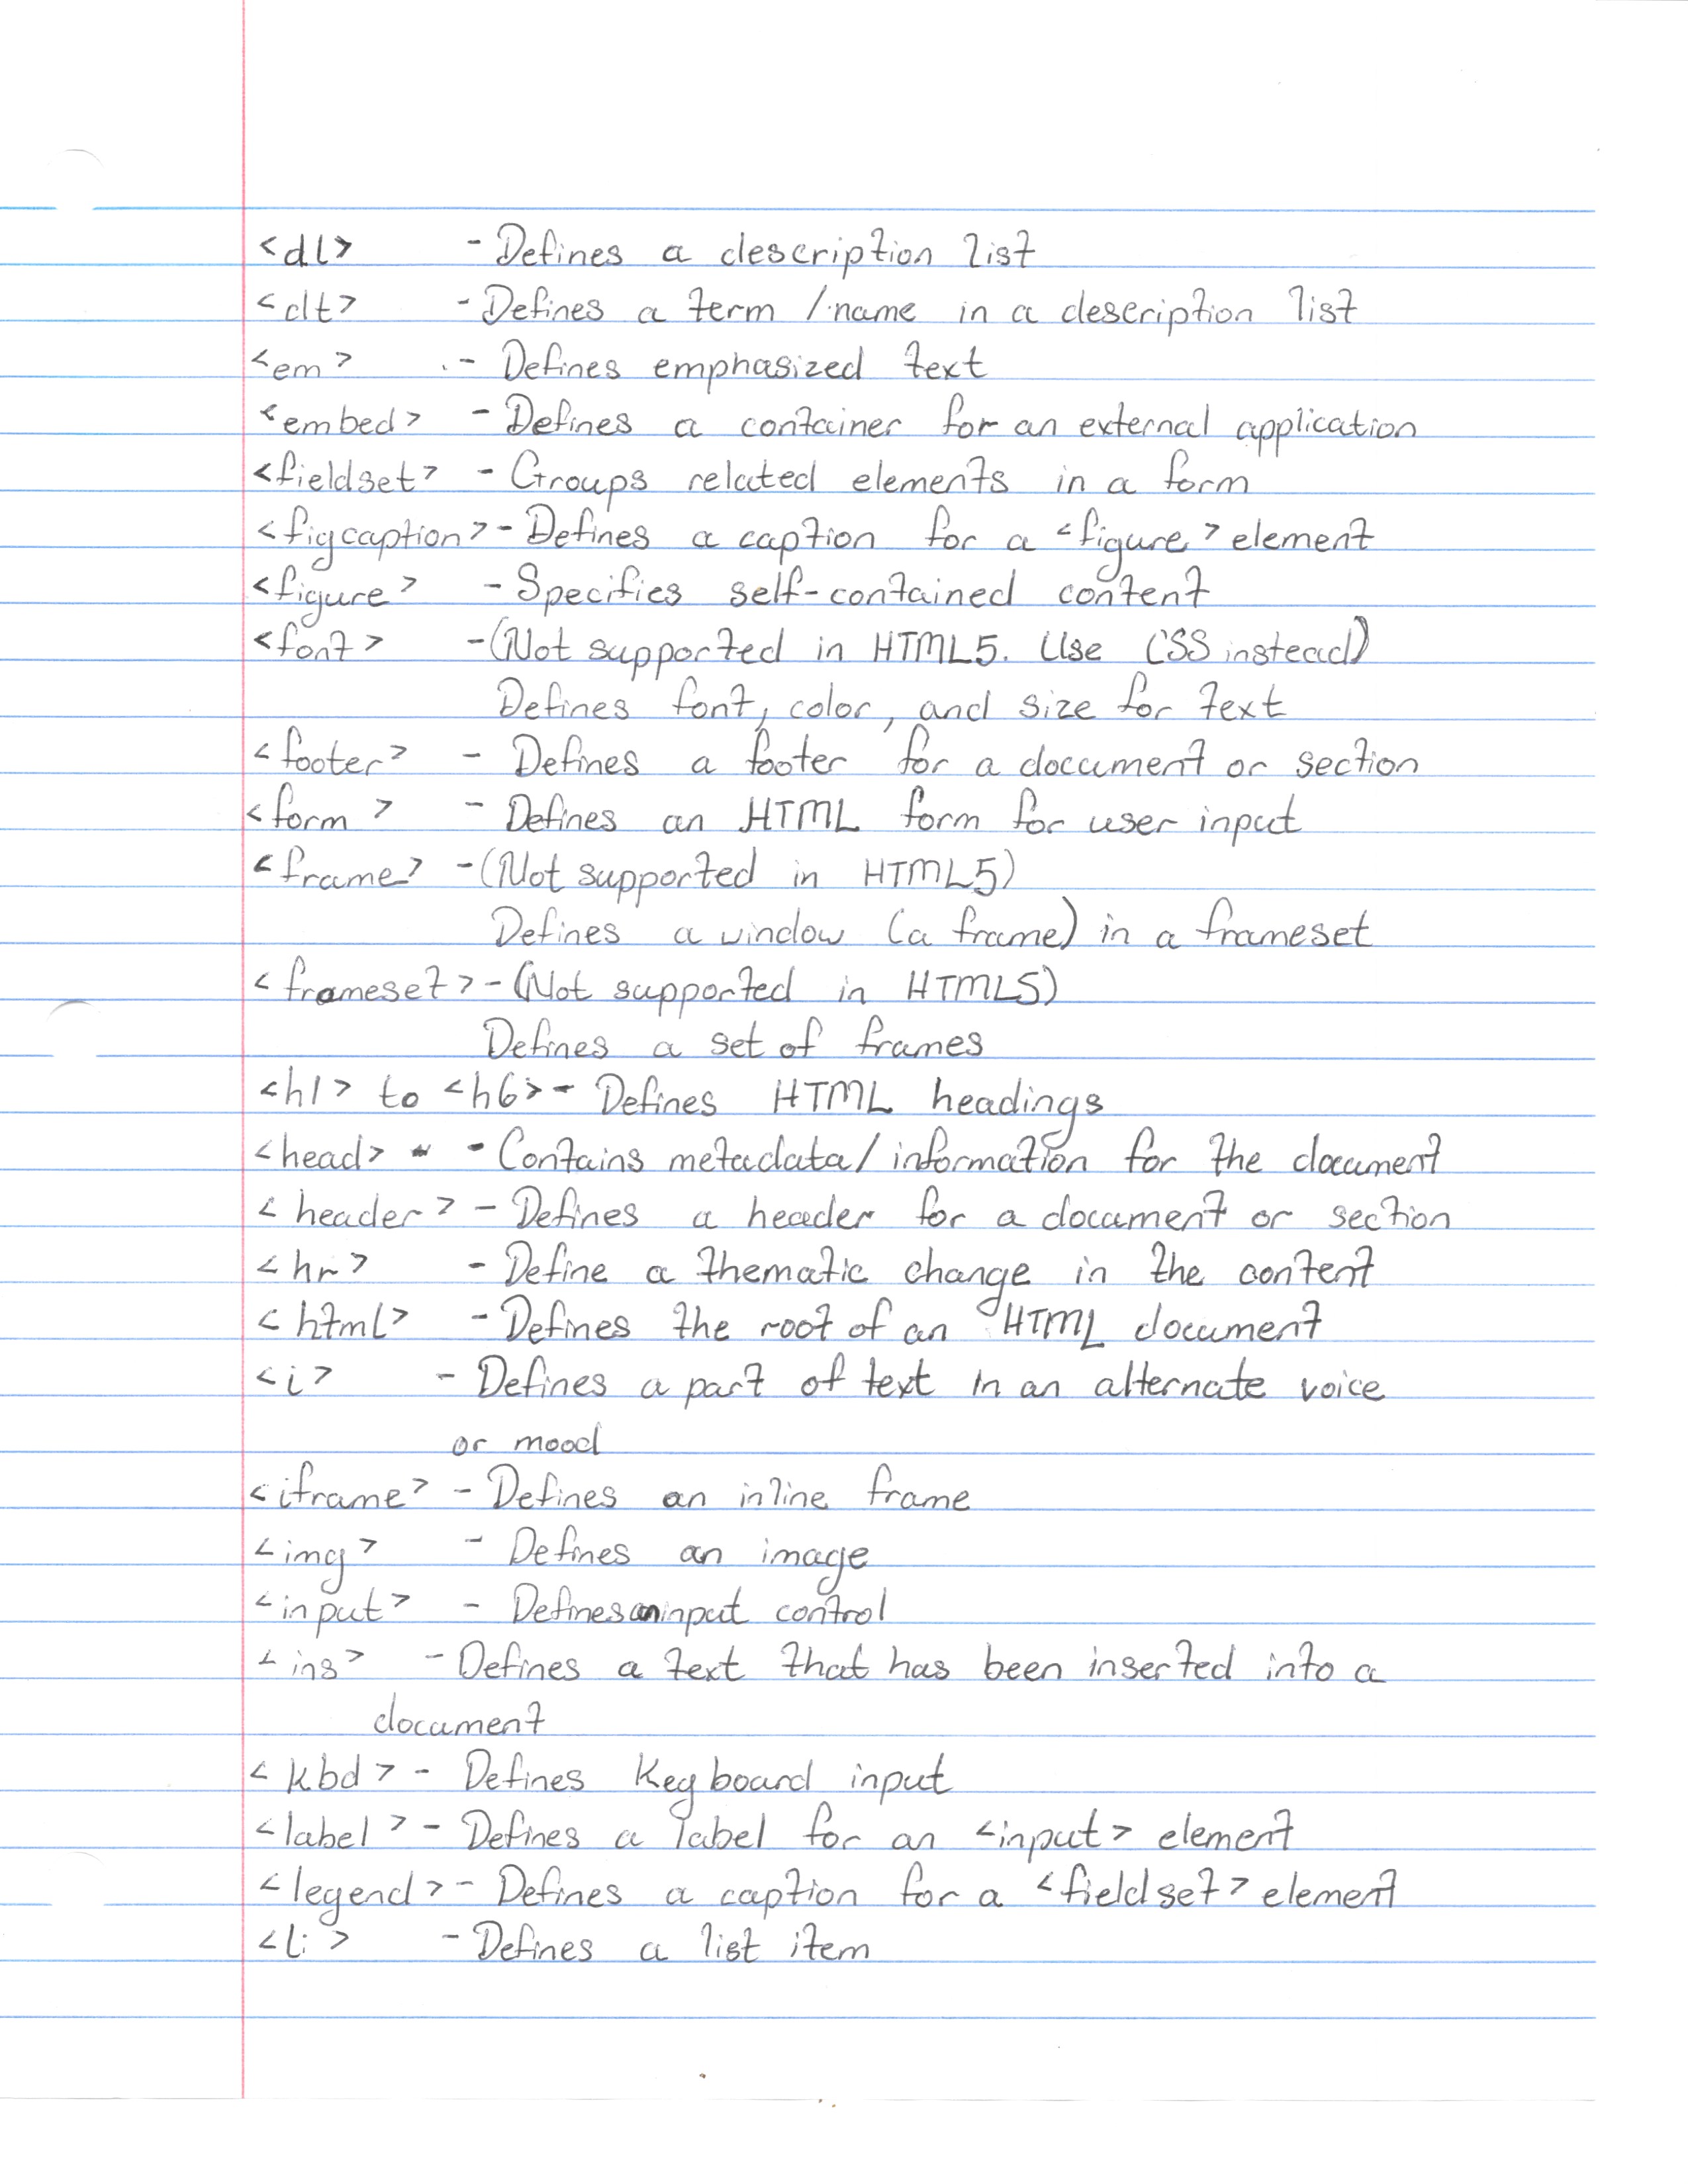 <dl> - Defines a description list
<dt> - Defines a term / name in a description list
<em> - Defines emphasized text
<embed> - Defines a container for an external application
<fieldset> - Groups related elements in a form
<figcaption> - Defines a caption for a <figure> element
<figure> - Specifies self-contained content
<font> - (Not supported in HTML5. Use CSS instead)
Defines font, color, and size for text
<footer> - Defines a footer for a document or section
<form> - Defines an HTML form for user input
<frame> - (Not supported in HTML5)
Defines a window (a frame) in a frameset
<frameset> - (Not supported in HTML5)
Defines a set of frames
<h1> to <h6> - Defines HTML headings
<head> - Contains metadata/information for the document
<header> - Defines a header for a document or section
<hr> - Define a thematic change in the content
<html> - Defines the root of an HTML document
<i> - Defines a part of text in an alternate voice
or mood
<iframe> - Defines an inline frame
<img> - Defines an image
<input> - Defines an input control
<ins> - Defines a text that has been inserted into a
document
<kbd> - Defines Keyboard input
<label> - Defines a label for an <input> element
<legend> - Defines a caption for a <fieldset> element
<li> - Defines a list item